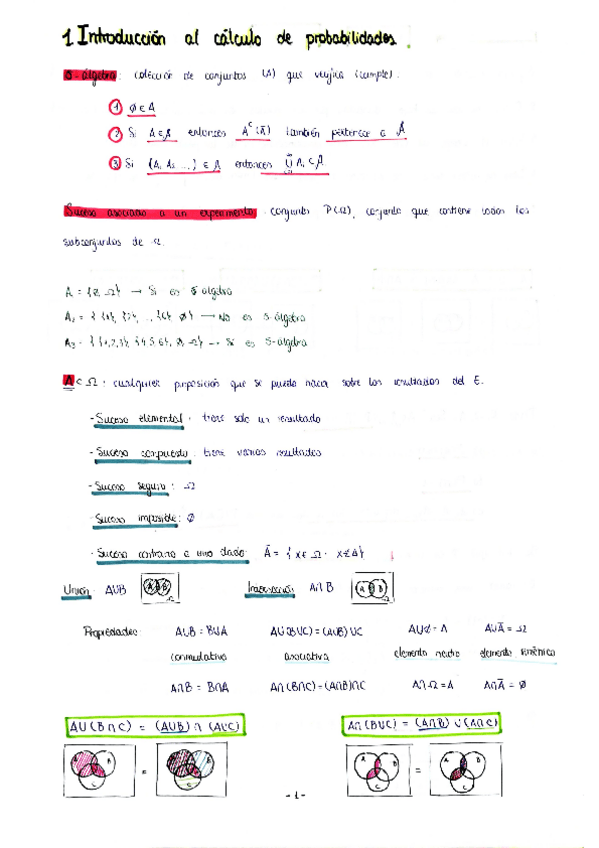 1 Introducción al cálculo de probabilidades.
σ-álgebra: colección de conjuntos (A) que verifica (cumple).
① ∅ ∈ A
② Si A ∈ A entonces Aᶜ (Ā) también pertenece a A
③ Si (A₁ A₂ ...) ∈ A entonces ∪ Aᵢ ⊂ A
Suceso asociado a un experimento: conjunto P(Ω), conjunto que contiene todos los
subconjuntos de Ω.
A = {∅, Ω} → Si es σ álgebra
A₂ = { {1}, {2}, ..., {6} ∅ } → No es σ-álgebra
A₃ = { {1,2,3}, {4,5,6}, ∅, Ω} → Si es σ-álgebra
A ⊂ Ω : cualquier proposición que se pueda hacer sobre los resultados del E.
- Suceso elemental: tiene solo un resultado
- Suceso compuesto: tiene varios resultados
- Suceso seguro: Ω
- Suceso imposible: ∅
- Suceso contrario a uno dado: Ā = { x ∈ Ω : x ∉ A}
Unión: A∪B A B Intersección: A∩B A B
Propiedades: A∪B = B∪A A∪(B∪C) = (A∪B)∪C A∪∅ = A A∪Ā = Ω
conmutativa asociativa elemento neutro elemento
A∩B = B∩A A∩(B∩C) = (A∩B)∩C A∩Ω = A A∩Ā = ∅
A∪(B∩C) = (A∪B) ∩ (A∪C) A∩(B∪C) = (A∩B) ∪ (A∩C)
B C = C A B C = C
- 1 -